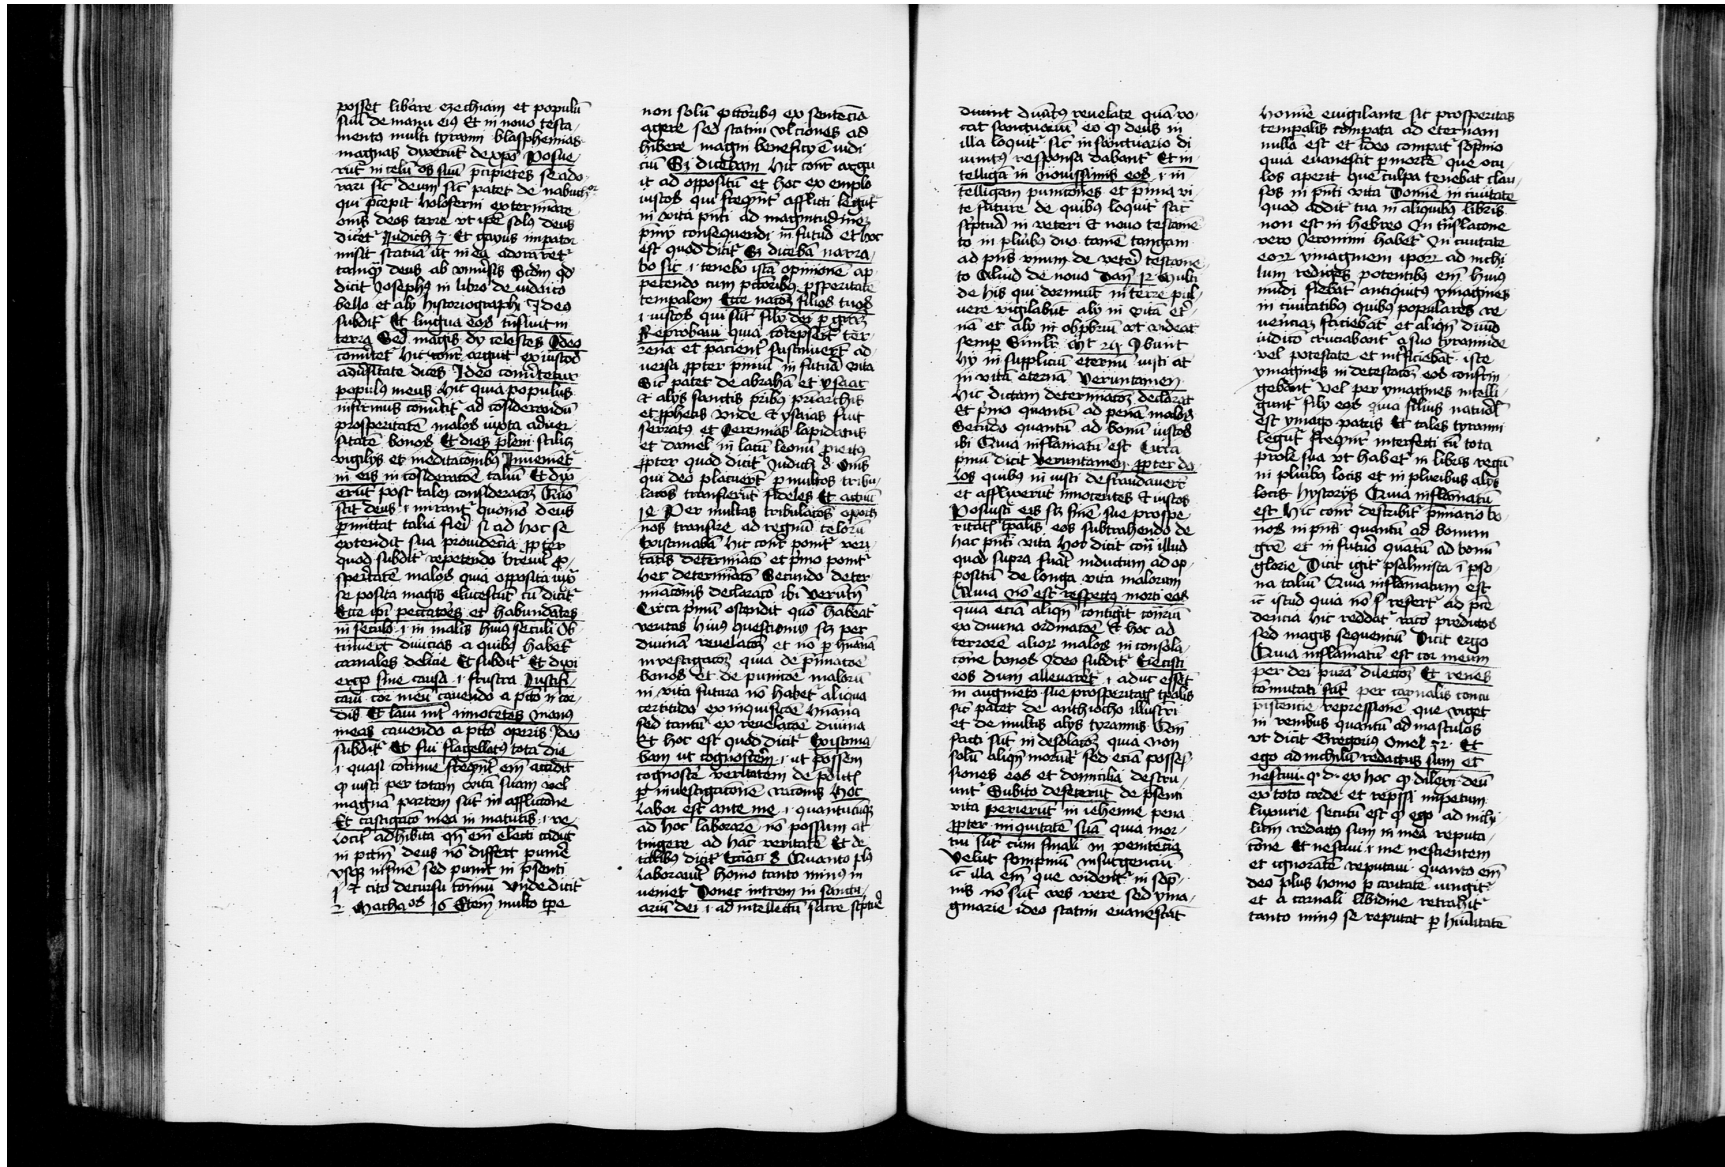 posset libāre ezechiam et populū
suū de manu eiꝰ Et in nouo testa-
mento multi tyranni blasphemias
magnas dixerūt de xp̄o Posue-
rūt in celū os suū p̄cipiētes se ado-
rari sic deum sic patet de nabuch
qui p̄cepit holoferni exterminare
om̄s deos terre vt ip̄e solꝰ deus
dicet̄ Judich 3 Et gayus imp̄ator
misit statuā
tamqᷓ deus ab vniūsis Scdm qd
dicit Josephꝰ in libro de iudaico
bello et alij historiographi Ideo
subdit̄ Et lingua eoꝝ trāsiuit in
terra Sed magis dij celestes Ideo
conūtet̄ hic cont̄ arguit ex iustoꝝ
adūsitate dicēs Ideo conūtetur
populꝰ meus hic quia populus
infirmus conūtit̄ ad cōsiderandū
prosperitatē maloꝝ iuxta aduer-
sitatē bonoꝝ Et dies pleni scilicꝫ
vigilijs et meditacōibꝰ Inueniet̄
in eis in cōsideracōe taliū Et dix-
erūt post taleꝫ consideracōꝫ Quō
scit deus .i. mirant̄ quomō deus
p̄mittat talia fieri si ad hoc se
extendit sua prouidēcia ꝓpter
quod subdit̄ repetendo breuit̄ ꝓ-
speritatē maloꝝ quia opposita iuxᷓ
se posita magis elucescūt cū dicit̄
Ecce ip̄i peccatores et habundātes
in seculo .i. in malis huiꝰ seculi Ob-
tinuerūt diuicias a quibꝰ habēt̄
carnales delicie Et subdit̄ Et dixi
ergo sine causa .i. frustra Justifi-
caui cor meū cauendo a pctō in cor-
dis Et laui int̄ innocētes manus
meas cauendo a pctō operis Ideo
subdit̄ Et fui flagellatꝰ tota die
.i. quasi cōtinue freqn̄t̄ em̄ accidit
qᷓ iusti per totam vitā suam vel
magnā partem sūt in afflictōne
Et castigatō mea in matutis .i. ve-
lociṫ adhibita qn̄ em̄ electi cadūt
in pctm̄ deus nō differt punīe
vsqꝫ in finē sed punit in p̄senti
et cito decursu Vnde dicit̄
2 Machaꝛ 6 Eteni multo tp̄e
non solū pctōribus ex sentēcia
agere sed statim vlciones ad
hibere magni beneficij ē iudi-
ciū Si dicebam Hic cont̄ argu
it ad oppositū et hoc ex exemplo
iustoꝝ qui freqn̄t̄ afflicti legūt̄
in vita p̄nti ad magnitudinē
p̄mij consequendi in futuꝝ et hoc
est quod dicit̄ Si dicebā narra-
bo sic .i. tenebo istā opinionē ap-
petendo cum pctōribus ꝓsperitatē
temporalem Ecce nacōeꝫ filioꝝ tuoꝝ
.i. iustoꝝ qui sūt filij dei p̄ gr̄am
Reprobaui quia cōtēpserūt ter-
rena et pacient̄ sustinuerūt ad-
uersa ꝓpter p̄miū in futura vita
Sic patet de abrahā et ysaac
et alijs sanctis pribus priarchis
et ꝓphetis vnde et ysaias fuit
serratꝰ et Jeremias lapidatus
et daniel in lacū leonū ꝓiectus
ꝓpter quod dicit̄ Judich 8 Om̄s
qui deo placuerūt p̄ multos tribu-
lacōes transierūt fideles Et actuū
14 Per multas tribulacōes oportꝫ
nos transire ad regnū celorū
Existimabā hic cont̄ ponit̄ veri-
tatis determinacō et p̄mo ponit̄
hec determinacō Secundo deter-
minacōnis declaracō ibi Verūtn̄
Circa p̄mū ostendit quō habeat̄
veritas huiꝰ questionis scꝫ per
diuinā reuelacōeꝫ et nō p̄ hūanā
inuestigacōeꝫ quia de p̄miacōe
bonoꝝ et de punicōe malorū
in vita futura nō habet̄ aliqua
certitudo ex inquisicōe hūana
sed tantū ex reuelacōe diuina
Et hoc est quod dicit̄ Existima-
bam ut cognoscerē .i. ut possem
cognoscē veritatem de
p̄ inuestigacōnē racōnis Hoc
labor est ante me .i. quantūcūqꝫ
ad hoc laborarē nō possum at-
tingere ad hāc veritatē Et de
talibꝰ dicit̄ 8 Quanto plꝰ
laborauerit homo tanto minꝰ in-
ueniet Donec intrem in sanctu-
ariū dei .i. ad intellectū sacre sc̄pture
diuinit reuelate quā vo-
cat sanctuariū eo qᷓ deus in
illa loquit̄ sic̄ in sanctuario di
uinitꝰ responsa dabant̄ Et in-
telligā in nouissimis eoꝝ .i. in
telligam punicōnes et p̄mia vi-
te future de quibus loquit̄ sacr̄
sc̄ptura in veteri et nouo testamē-
to in pluribꝰ duo tamē tangam
ad p̄ns vnum de veteri testame-
to Aliud de nouo Dan̄ 12 Multi
de his qui dormiūt in terre pul-
uere vigilabūt alij in vitā et̄-
nā et alij in obprobriū vt videāt
semp̄ Similr̄ mt̄ 25 Ibunt
hij in suppliciū eternū iusti at̄
in vitā eternā Verumtamen
Hic dictam determinacōeꝫ declarat
Et p̄mo quantū ad penā maloꝝ
Secūdo quantū ad bonū iustoꝝ
ibi Quia inflamatū est Circa
p̄mū dicit Verumtamen ꝓpter do-
los quibꝰ iniusti defraudauerūt
et afflixerūt innocentes et iustos
Posuisti eis scꝫ finē sue prospe-
ritatis tp̄alis eos subtrahendo de
hac p̄nti vita hoc dicit cont̄ illud
quod supra fuit inductum ad op-
positū de longa vita malorum
Quia nō est respectus morti eoꝝ
quia eciā aliqn̄ contigit cont̄riū
ex diuina ordinacōe Et hoc ad
terrorē alioꝝ maloꝝ in consola-
cōne bonoꝝ Ideo subdit̄ Eiecisti
eos dum alleuarēt̄ .i. aduc essēt
in augmēto sue prosperitatis tp̄alis
sic̄ patet de anthiocho illustri
et de multis alijs tyrannis Quō
facti sūt in desolacōeꝫ quia non
solū aliqn̄ moriūt̄ sed eciā posses-
siones eoꝝ et domicilia destru-
unt̄ Subito defecerūt de p̄senti
vita perierūt in iehenne pena
ꝓpter iniquitatē suā quia mor-
tui sūt cum finali in penitēcia
Velut sompniū insurgenciū
.i. illa em̄ que vident̄ in sōp-
nis nō sūt res vere sed yma-
ginarie ideo statim euanescūt
homīe euigilante sic prosperitas
temporalis compata ad eternam
nulla est et ideo compat̄ sōpnio
quia euanescit p̄ mortē que ocu-
los aperit que culpa tenebat clau-
sos in p̄nti vita Domine in ciuitate
quod addit̄ tua in aliquibus libris
non est in hebreo In trāslacōne
vero Jeronimi habet̄ In ciuitate
eoꝝ ymaginem ipoꝝ ad nichi-
lum rediges potentibꝰ em̄ huius
mūdi fiebāt antiquitus ymagines
in ciuitatibus quibꝰ populares re-
uerēciaꝫ faciebāt et aliqn̄ diuio
iudicio cruciabant̄ a suo tyrannide
vel potestate et int̄ficiebāt iste
ymagines in detestacōeꝫ eoꝝ confrin-
gebāt̄ vel per ymagines intelli-
gunt̄ filij eoꝝ quia filius nat̄al̄
est ymago patris Et tales tyranni
legūt̄ freqn̄t̄ interfecti cū tota
prole sua vt habet̄ in libris regū
in pluribꝰ locis et in pluribus alijs
locis hystorijs Quia inflamatū
est Hic cont̄ describit p̄miacio bo-
noꝝ in p̄nti quantū ad bonum
gr̄e et in futuro quātū ad bonū
glorie Dicit igit̄ psalmista .i. pso-
na taliū Quia inflamatum est
.i. istud quia nō refert̄ ad pre-
dencia hic reddat̄ racō predictoꝝ
sed magis sequenciū Dicit ergo
Quia inflamatū est cor meum
per dei purā dilectōꝫ Et renes
cōmutati sūt per carnalis concu-
piscencie repressionē que viget
in renibus quantū ad masculos
vt dicit Gregorius Omel 32 Et
ego ad nichilū redactus sum et
nesciui .q. d. ex hoc qᷓ dilexi deū
ex toto corde et rep̄ssi impetum
luxurie secutū est qᷓ ego ad nichi-
lum redactꝰ sum in mea reputa-
cōne Et nesciui .i. me nescientem
et ignorātē reputaui quanto em̄
deo plus homo p̄ caritatē iungit̄
et a carnali libidine retrahit̄
tanto minꝰ se reputat p̄ hūilitatē